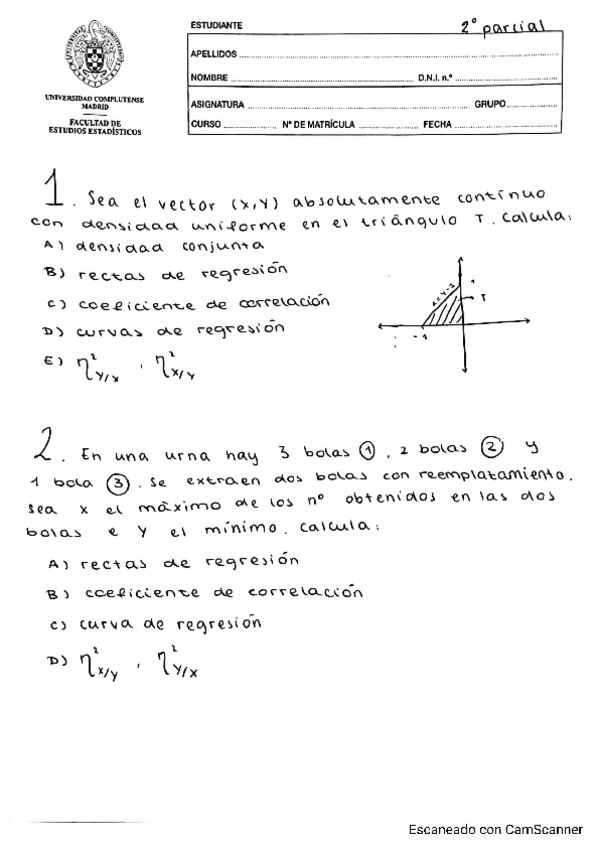 ESTUDIANTE
2º parcial
APELLIDOS
NOMBRE D.N.I. n.º
ASIGNATURA GRUPO
CURSO Nº DE MATRÍCULA FECHA
UNIVERSIDAD COMPLUTENSE
MADRID
FACULTAD DE
ESTUDIOS ESTADÍSTICOS
1. Sea el vector (X,Y) absolutamente continuo
con densidad uniforme en el triángulo T. Calcula:
A) densidad conjunta
B) rectas de regresión
C) coeficiente de correlación
D) curvas de regresión
E) η²Y/X , η²X/Y
1
T
-1
2. En una urna hay 3 bolas ①, 2 bolas ② y
1 bola ③. Se extraen dos bolas con reemplatamiento.
Sea X el máximo de los nº obtenidos en las dos
bolas e Y el mínimo. Calcula:
A) rectas de regresión
B) coeficiente de correlación
C) curva de regresión
D) η²X/Y , η²Y/X
Escaneado con CamScanner